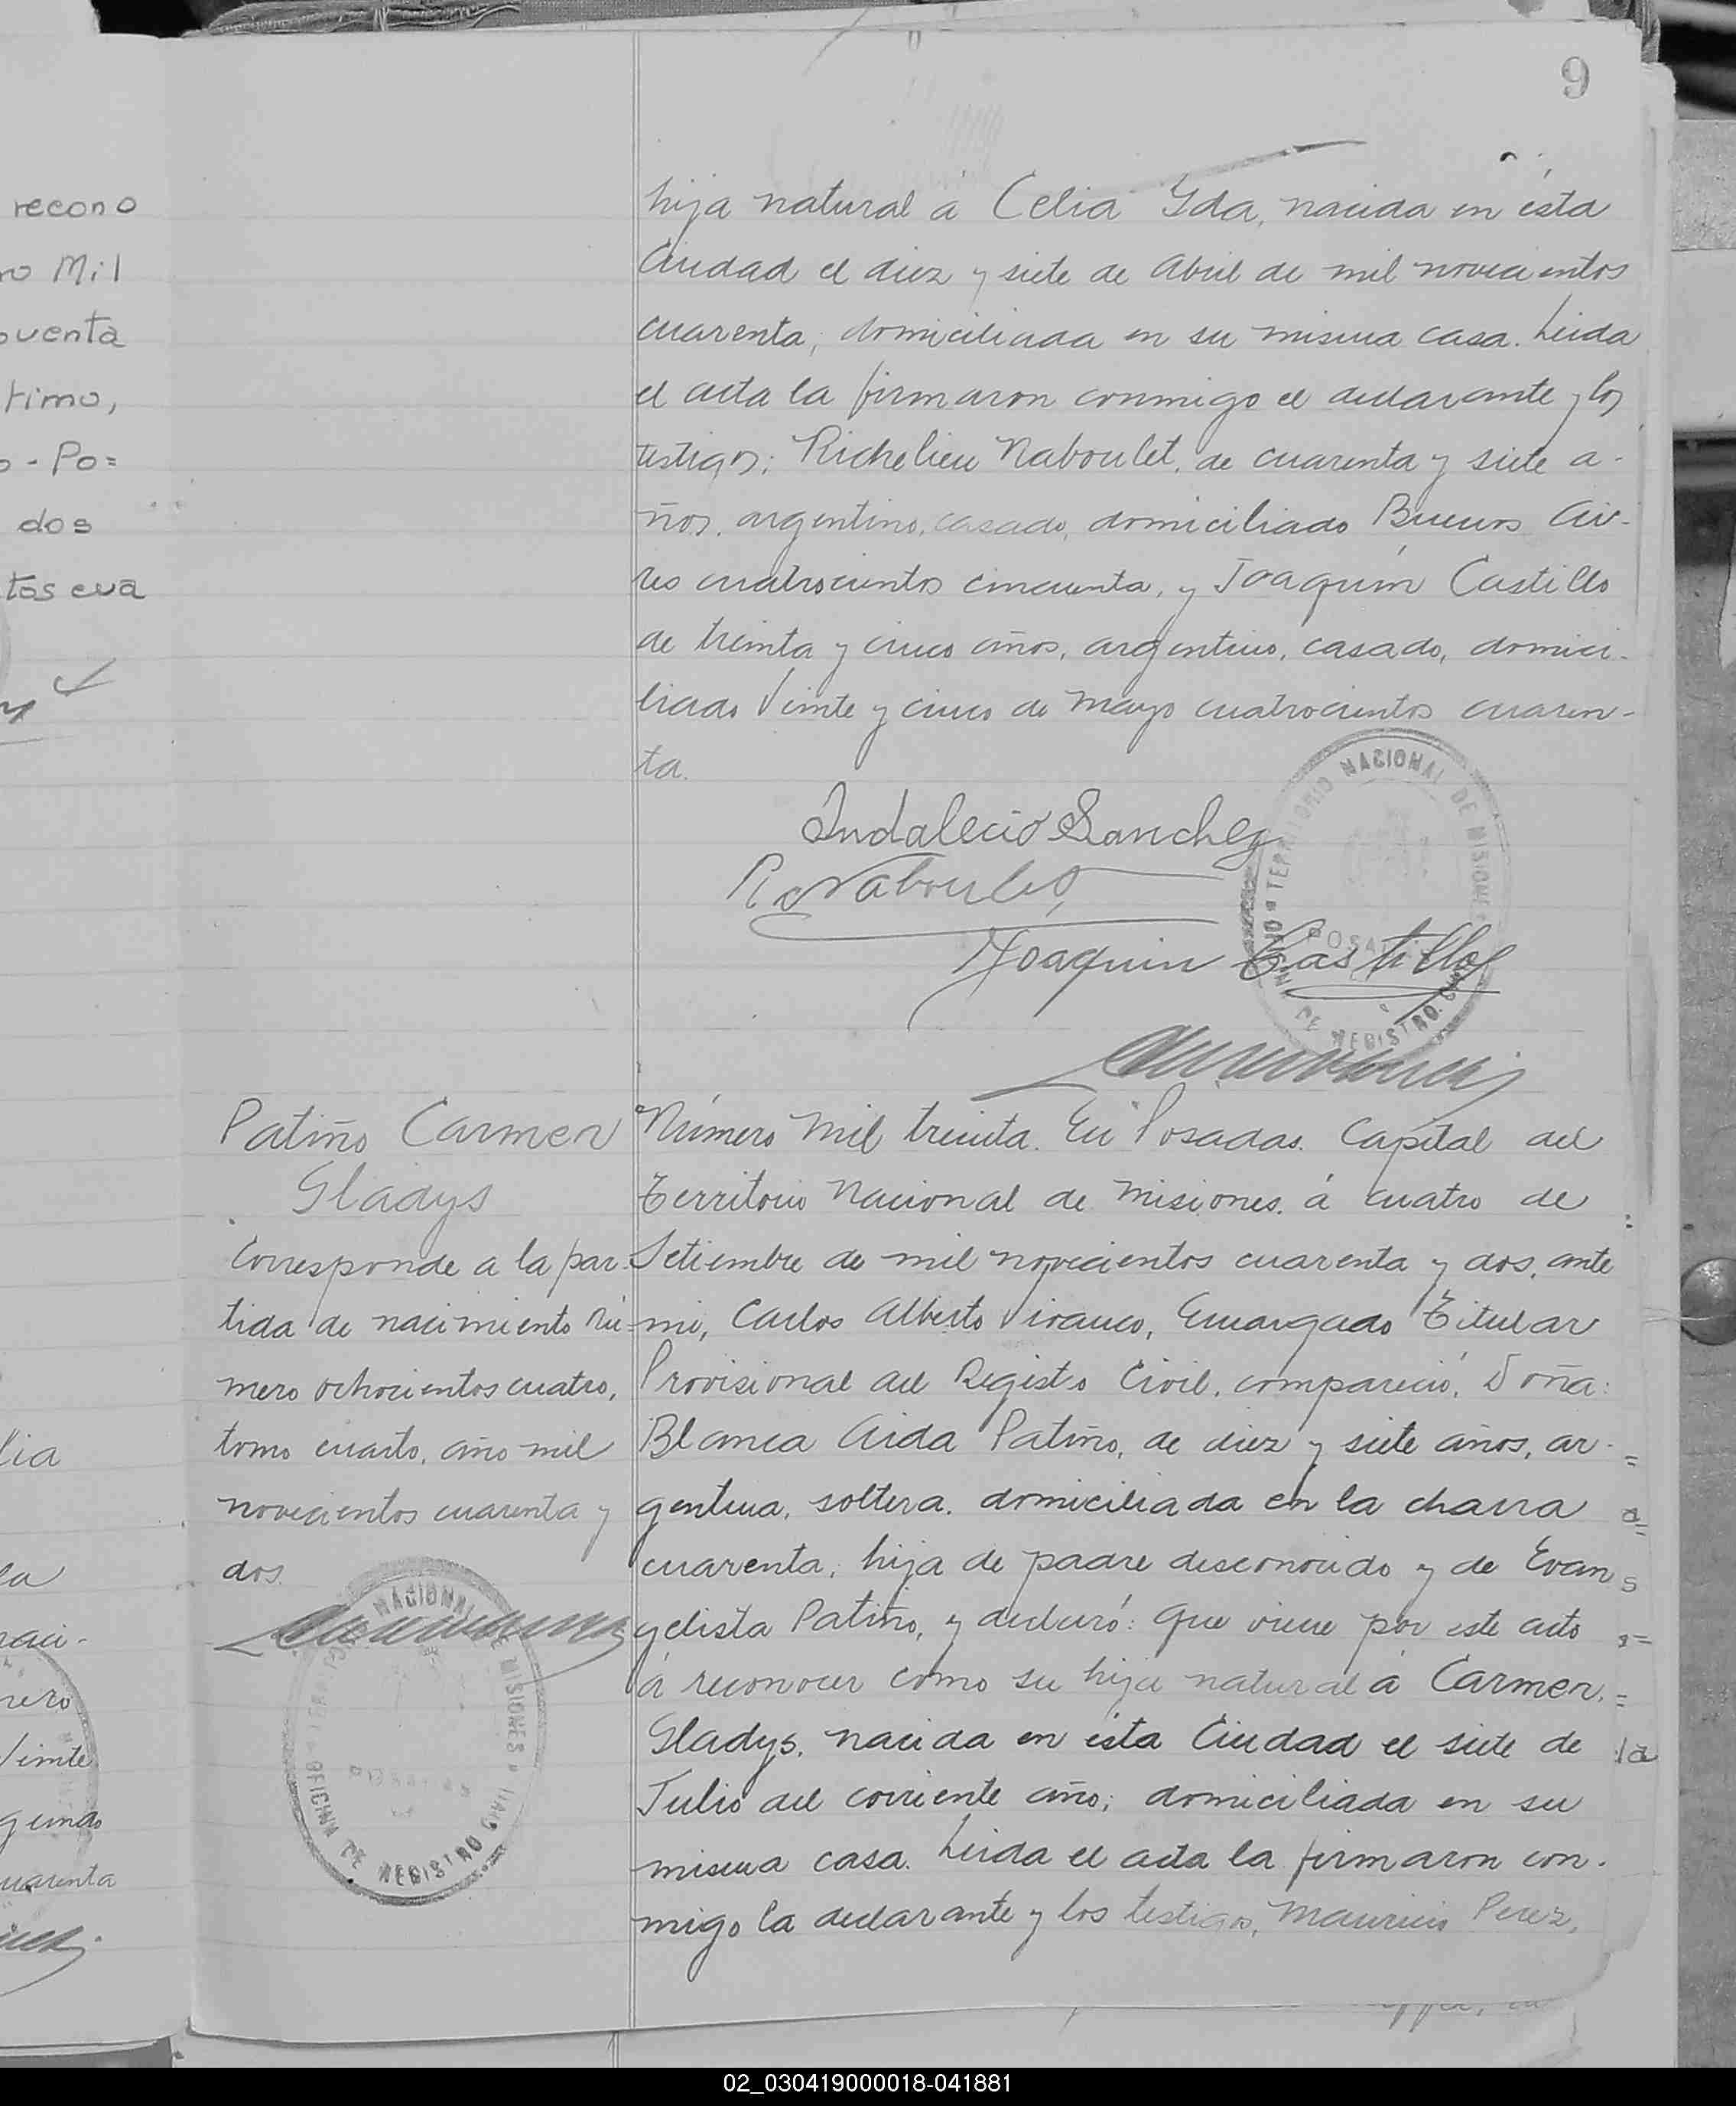 9
recono
ro Mil
ouenta
timo,
o - Po=
dos
tos cua
lia
naci-
nero
Veinte
gundo
uarenta
hija natural á Celia Yda, nacida en ésta
Ciudad el diez y siete de Abril de mil novecientos
cuarenta, domiciliada en su misma casa. Leida
el acta la firmaron conmigo el declarante y los
testigos; Richelieu Naboulet, de cuarenta y siete a-
ños, argentino, casado, domiciliado Buenos Ai-
res cuatrocientos cincuenta, y Joaquín Castillo
de treinta y cinco años, argentino, casado, domici-
liado Veinte y cinco de Mayo cuatrocientos cuaren-
ta.
Indalecio Sanchez
R Naboulet
Joaquin Castillo
TERRITORIO NACIONAL DE MISIONES
POSADAS
OFICINA DE REGISTRO CIVIL
Patiño Carmen
Gladys
Corresponde a la par-
tida de nacimiento nú-
mero ochocientos cuatro,
tomo cuarto, año mil
novecientos cuarenta y
dos.
TERRITORIO NACIONAL DE MISIONES
POSADAS
OFICINA DE REGISTRO CIVIL
Número mil treinta. En Posadas. Capital del
Territorio Nacional de Misiones. á cuatro de
Setiembre de mil novecientos cuarenta y dos, ante
mi, Carlos Alberto Vivanco, Encargado Titular
Provisional del Registro Civil, compareció, Doña:
Blanca Aida Patiño, de diez y siete años, ar-
gentina, soltera, domiciliada en la chacra
cuarenta, hija de padre desconocido y de Evan
gelista Patiño, y declaró: Que viene por este acto
á reconocer como su hija natural á Carmen
Gladys, nacida en ésta Ciudad el siete de
Julio del corriente año; domiciliada en su
misma casa. Leida el acta la firmaron con-
migo la declarante y los testigos, Mauricio Perez,
02_030419000018-041881